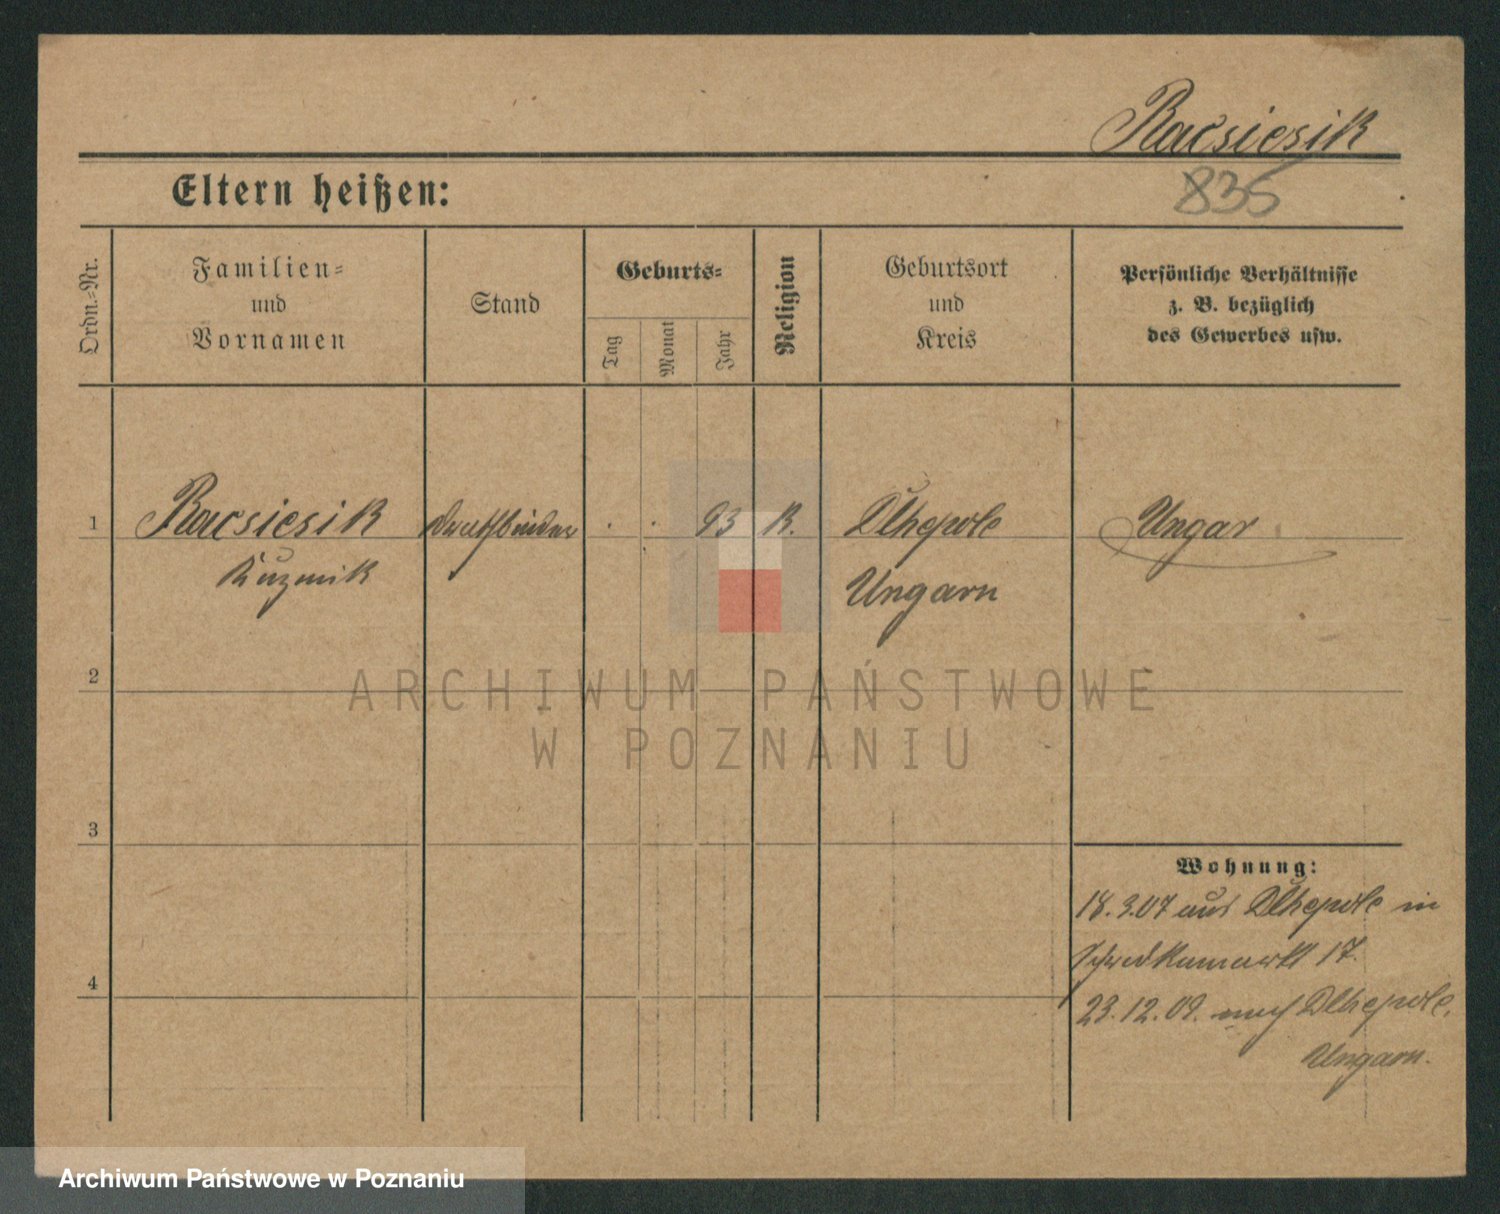 Racsiesik
835
Eltern heißen:
Ordn.-Nr.
Familien-
und
Vornamen
Stand
Geburts-
Tag
Monat
Jahr
Religion
Geburtsort
und
Kreis
Persönliche Verhältnisse
z. B. bezüglich
des Gewerbes usw.
1 Racsiesik Drahtbinder . . 93 K. Dlhepole Ungar
Kuzmik Ungarn
2
ARCHIWUM PAŃSTWOWE
W POZNANIU
3
Wohnung:
18.3.07 aus Dlhepole in
17.
4
23.12.09. nach Dlhepole,
Ungarn.
Archiwum Państwowe w Poznaniu